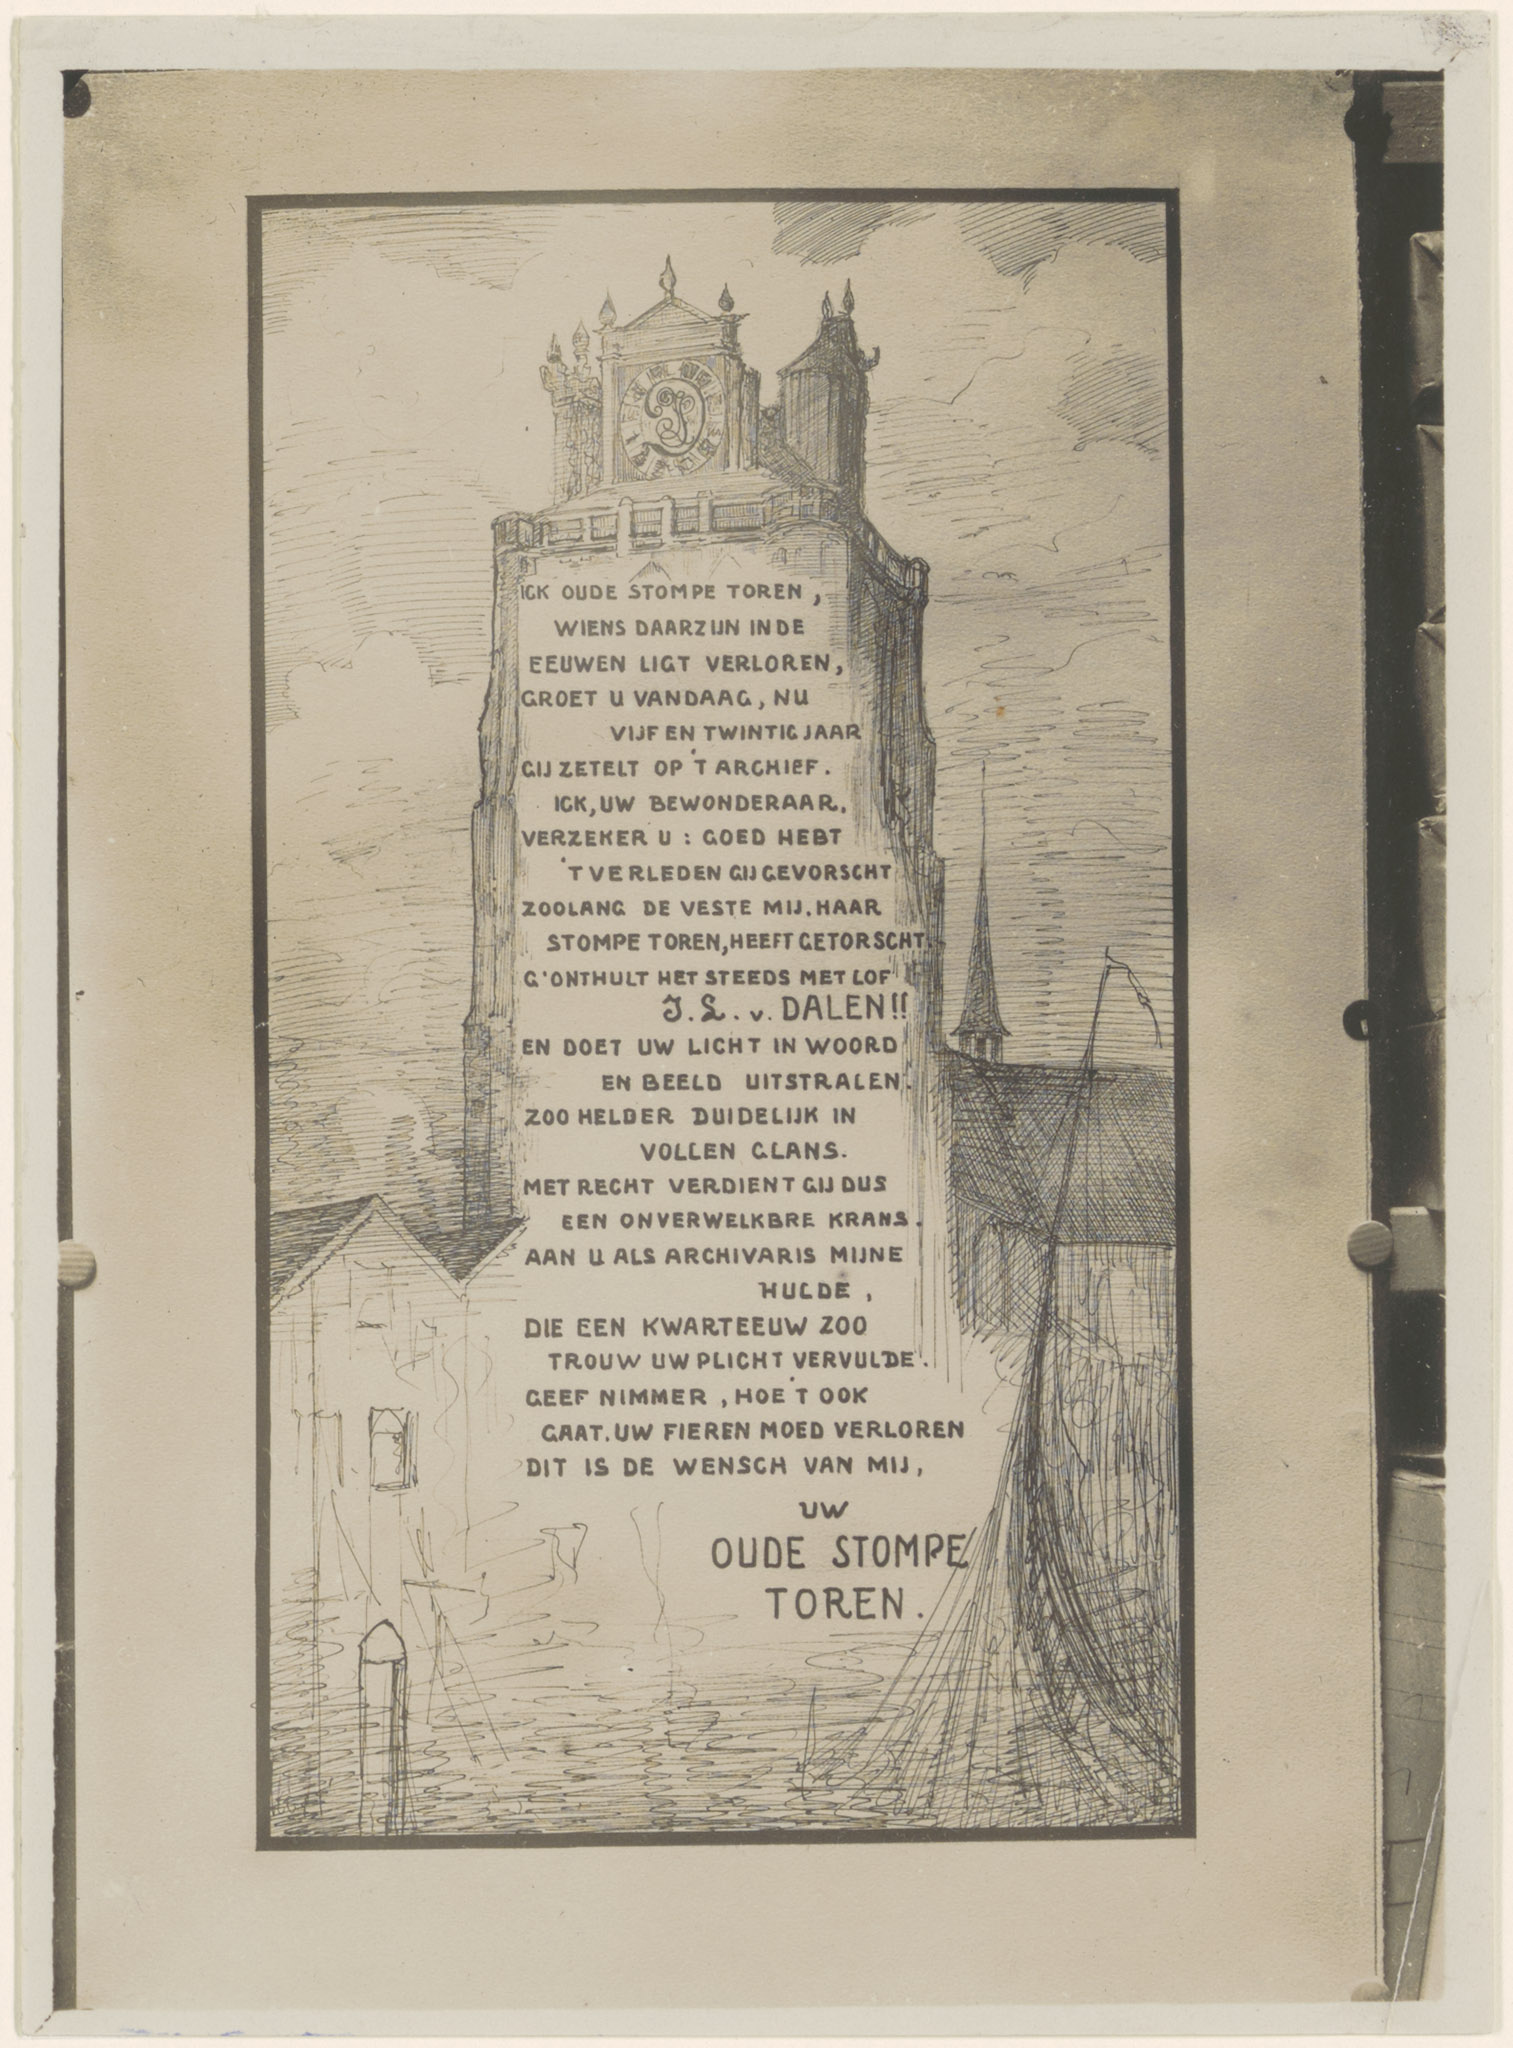 ICK OUDE STOMPE TOREN,
WIENS DAARZIJN IN DE
EEUWEN LIGT VERLOREN,
GROET U VANDAAG, NU
VIJF EN TWINTIG JAAR
GIJ ZETELT OP 'T ARCHIEF.
ICK, UW BEWONDERAAR,
VERZEKER U: GOED HEBT
'T VERLEDEN GIJ GEVORSCHT
ZOOLANG DE VESTE MIJ, HAAR
STOMPE TOREN, HEEFT GETORSCHT.
G'ONTHULT HET STEEDS MET LOF
J. L. v. DALEN!!
EN DOET UW LICHT IN WOORD
EN BEELD UITSTRALEN.
ZOO HELDER DUIDELIJK IN
VOLLEN GLANS.
MET RECHT VERDIENT GIJ DUS
EEN ONVERWELKBRE KRANS.
AAN U ALS ARCHIVARIS MIJNE
HULDE,
DIE EEN KWARTEEUW ZOO
TROUW UW PLICHT VERVULDE.
GEEF NIMMER, HOE 'T OOK
GAAT, UW FIEREN MOED VERLOREN
DIT IS DE WENSCH VAN MIJ,
UW
OUDE STOMPE
TOREN.